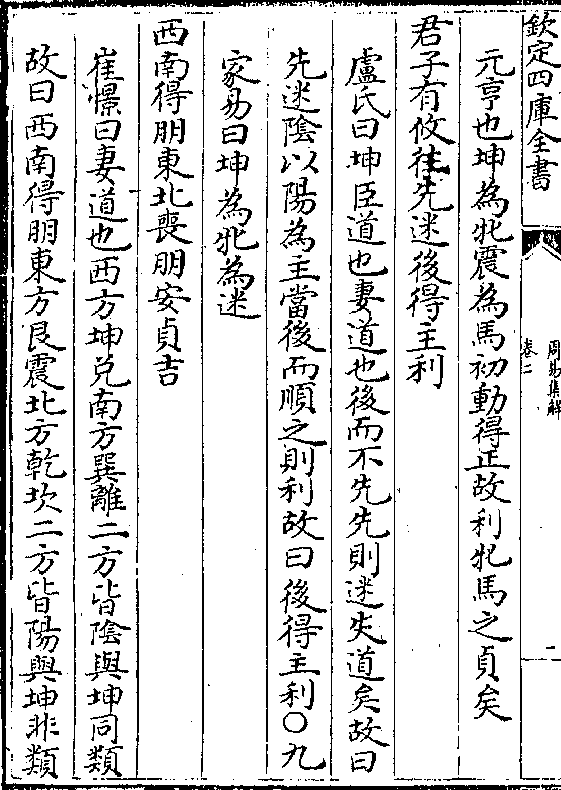 欽定四庫全書
周易集解
卷二
二
元亨也坤為牝震為馬初動得正故利牝馬之貞矣
君子有攸往先迷後得主利
盧氏曰坤臣道也妻道也後而不先先則迷失道矣故曰
先迷陰以陽為主當後而順之則利故曰後得主利〇九
家易曰坤為牝為迷
西南得朋東北喪朋安貞吉
崔憬曰妻道也西方坤兌南方巽離二方皆陰與坤同類
故曰西南得朋東方艮震北方乾坎二方皆陽與坤非類